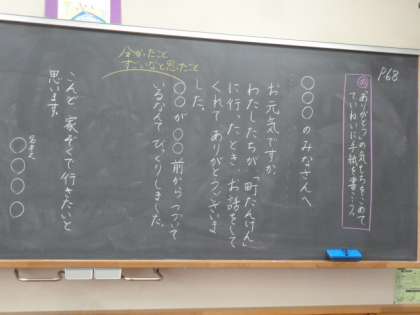 P68
め
「ありがとう」の気もちをこめて
ていねいに手紙を書こう。
○○○のみなさんへ
お元気ですか。
わたしたちが「町たんけん」
に行ったとき、お話をして
くれてありがとうございま
した。
分かったこと
すごいなと思ったこと
○○が○○前からつづいて
いるなんてびっくりしました。
こんど、家ぞくで行きたいと
思います。
名まえ
○○○○